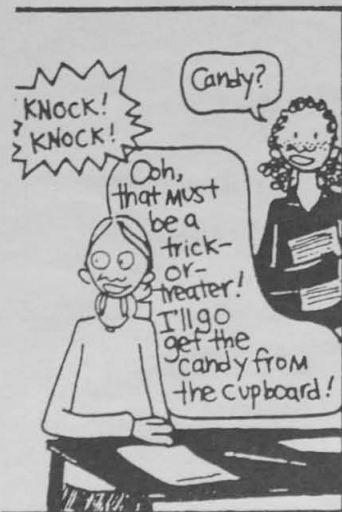 KNOCK!
KNOCK!
Candy?
Ooh,
that MUST
be a
trick-
or-
treater!
I'll go
get the
candy from
the cupboard!